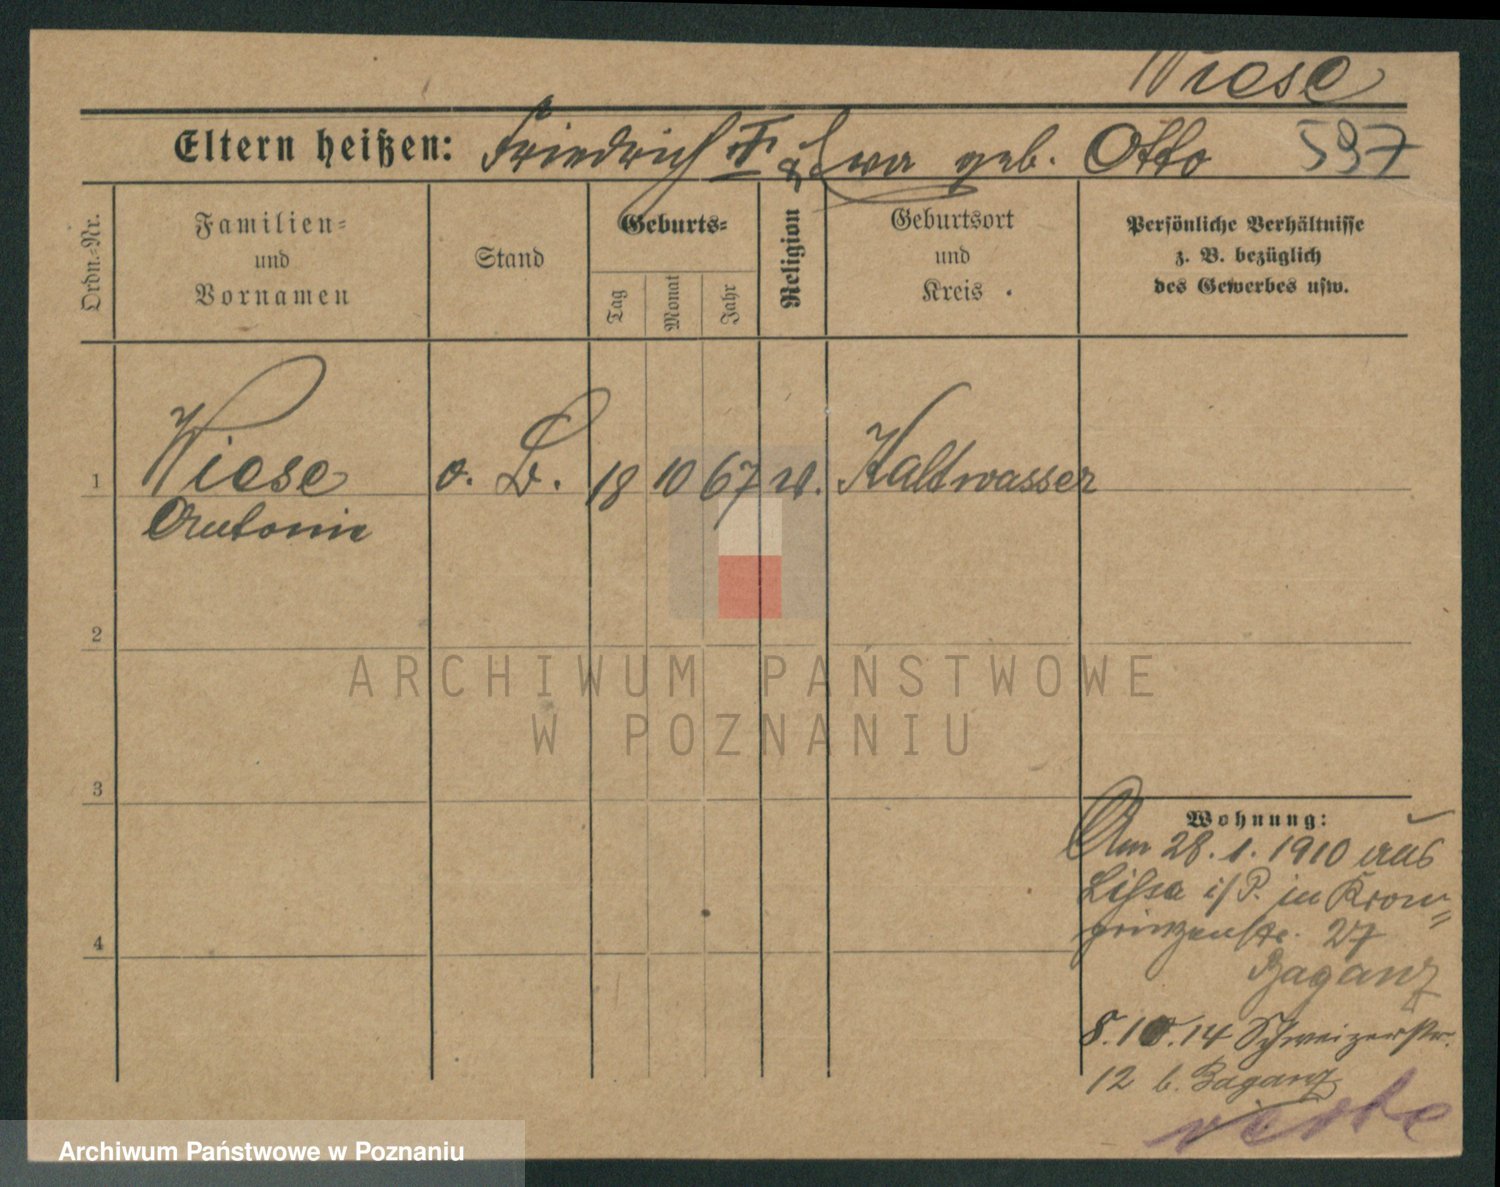 Wiese
Eltern heißen: Friedrich † & Eva geb. Otto 597
Ordn.-Nr.
Familien-
und
Vornamen
Stand
Geburts-
Tag
Monat
Jahr
Religion
Geburtsort
und
Kreis.
Persönliche Verhältnisse
z. B. bezüglich
des Gewerbes usw.
1 Wiese o. B. 18 10 67 Kaltwasser
Antonie
2
3
4
Wohnung:
Am 28. 1. 1910 aus
Lissa i/P. in Kron=
prinzenstr. 27
Baganz
8. 10. 14 Schweizerstr.
12 b. Baganz
verte
ARCHIWUM PAŃSTWOWE
W POZNANIU
Archiwum Państwowe w Poznaniu